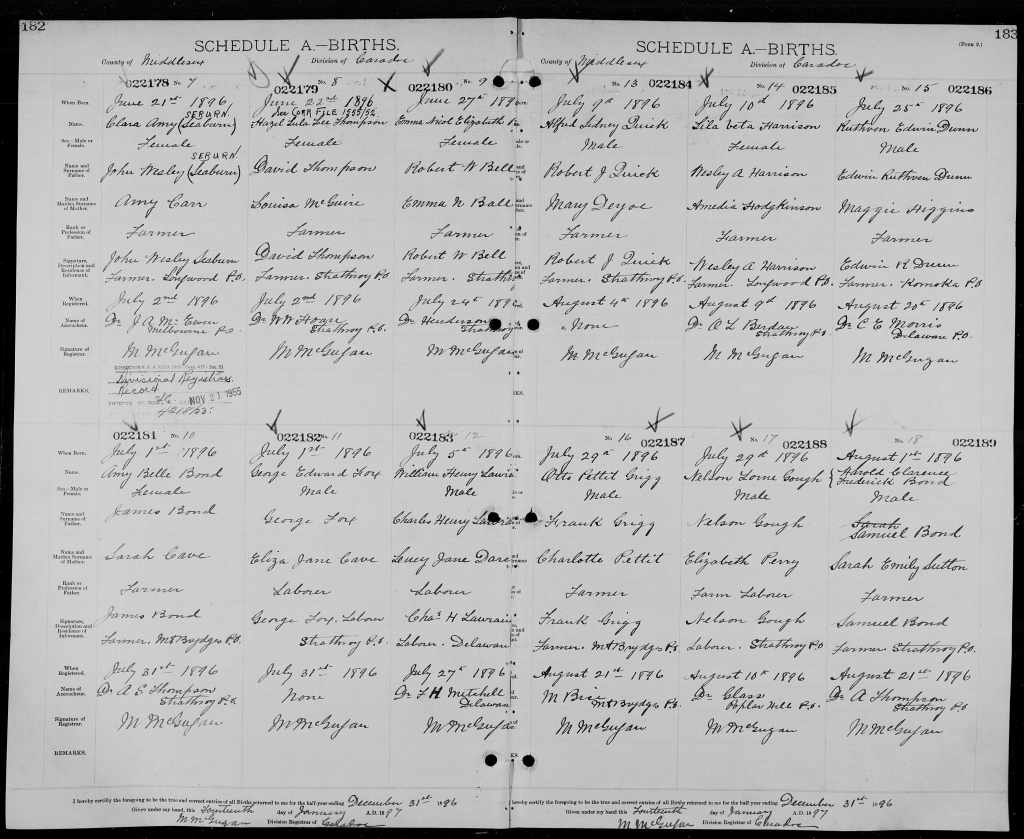 182
SCHEDULE A.—BIRTHS.
County of Middlesex Division of Caradoc
022178 No. 7
When Born. June 21st 1896
SEBURN
Name. Clara Amy (Seaburn)
Sex—Male or Female. Female
SEBURN
Name and Surname of Father. John Wesley (Seaburn)
Name and Maiden Surname of Mother. Amy Carr
Rank or Profession of Father. Farmer
Signature, Description and Residence of Informant. John Wesley Seaburn
Farmer. Longwood P.O.
When Registered. July 2nd 1896
Name of Accoucheur. Dr J. A. McEwen
Melbourne P.O.
Signature of Registrar. M McGugan
REMARKS.
Divisional Registrars
Record
NOV 21 1955
022179 No. 8
June 22nd 1896
See CORR FILE 1955/52
Hazel Lula Lee Thompson
Female
David Thompson
Louisa McGuire
Farmer
David Thompson
Farmer. Strathroy P.O.
July 2nd 1896
Dr W W Hoare
Strathroy P.O.
M McGugan
022180 No. 9
June 27th 1896
Emma Nicol Elizabeth
Female
Robert W Bell
Emma N Ball
Farmer
Robert W Bell
Farmer. Strath
July 24th 1896
Dr Henderson
Strathroy
M McGugan
022181 No. 10
When Born. July 1st 1896
Name. Amy Belle Bond
Sex—Male or Female. Female
Name and Surname of Father. James Bond
Name and Maiden Surname of Mother. Sarah Cave
Rank or Profession of Father. Farmer
Signature, Description and Residence of Informant. James Bond
Farmer. Mt Brydges P.O.
When Registered. July 31st 1896
Name of Accoucheur. Dr A S Thompson
Strathroy P.O.
Signature of Registrar. M McGugan
REMARKS.
022182 No. 11
July 1st 1896
George Edward Fox
Male
George Fox
Eliza Jane Cave
Laborer
George Fox. Labour
Strathroy P.O.
July 31st 1896
None
M McGugan
022183 No. 12
July 5th 1896
William Henry
Male
Charles Henry
Lucy Jane Dare
Laborer
Chas H Lawrain
Labour. Delaware
July 27th 1896
Dr F H Mitchell
Delaware
M McGugan
I hereby certify the foregoing to be the true and correct entries of all Births returned to me for the half-year ending December 31st 1896
Given under my hand, this Fourteenth day of January A.D. 1897
M McGugan Division Registrar of Caradoc
183
SCHEDULE A.—BIRTHS.
(Form 2.)
County of Middlesex Division of Caradoc
No. 13 022184
July 9th 1896
Alfred Sidney Quick
Male
Robert J Quick
Mary Deyoe
Farmer
Robert J Quick
Farmer. Strathroy P.O.
August 4th 1896
None
M McGugan
No. 14 022185
July 10th 1896
Lila Veta Harrison
Female
Wesley A Harrison
Amedia Hodgkinson
Farmer
Wesley A Harrison
Farmer. Longwood P.O.
August 9th 1896
Dr A L Berdan
Strathroy P.O.
M McGugan
No. 15 022186
July 25th 1896
Ruthven Edwin Dunn
Male
Edwin Ruthven Dunn
Maggie Higgins
Farmer
Edwin R Dunn
Farmer. Komoka P.O.
August 20th 1896
Dr C E Morris
Delaware P.O.
M McGugan
No. 16 022187
July 29th 1896
Otto Pettit Grigg
Male
Frank Grigg
Charlotte Pettit
Farmer
Frank Grigg
Farmer. Mt Brydges P.O.
August 21st 1896
M Brie
Mt Brydges P.O.
M McGugan
No. 17 022188
July 29th 1896
Nelson Lorne Gough
Male
Nelson Gough
Elizabeth Perry
Farm Laborer
Nelson Gough
Laborer. Strathroy P.O.
August 10th 1896
Dr Glass
Poplar Hill P.O.
M McGugan
No. 18 022189
August 1st 1896
Harold Clarence
Frederick Bond
Male
Sarah
Samuel Bond
Sarah Emily Sutton
Farmer
Samuel Bond
Farmer Strathroy P.O.
August 21st 1896
Dr A Thompson
Strathroy P.O.
M McGugan
hereby certify the foregoing to be the true and correct entries of all Births returned to me for the half-year ending December 31st 1896
Given under my hand, this Fourteenth day of January A.D. 1897
M McGugan Division Registrar of Caradoc